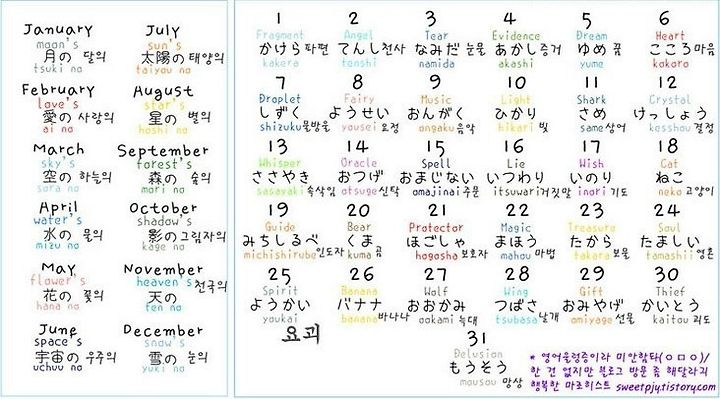 January
moon's
月の 달의
tsuki no
July
sun's
太陽の 태양의
taiyou no
February
love's
愛の 사랑의
ai no
August
star's
星の 별의
hoshi no
March
sky's
空の 하늘의
sora no
September
forest's
森の 숲의
mori no
April
water's
水の 물의
mizu no
October
shadow's
影の 그림자의
kage no
May
flower's
花の 꽃의
hana no
November
heaven's
天の 천국의
ten no
June
space's
宇宙の 우주의
uchuu no
December
snow's
雪の 눈의
yuki no
1 2 3 4 5 6
Fragment Angel Tear Evidence Dream Heart
かけら 파편 てんし 천사 なみだ 눈물 あかし 증거 ゆめ 꿈 こころ 마음
kakera tenshi namida akashi yume kokoro
7 8 9 10 11 12
Droplet Fairy Music Light Shark Crystal
しずく ようせい おんがく ひかり さめ けっしょう
shizuku 물방울 yousei 요정 ongaku 음악 hikari 빛 same 상어 kesshou 결정
13 14 15 16 17 18
Whisper Oracle Spell Lie Wish Cat
ささやき おつげ おまじない いつわり いのり ねこ
sasayaki 속삭임 otsuge 신탁 omajinai 주문 itsuwari 거짓말 inori 기도 neko 고양이
19 20 21 22 23 24
Guide Bear Protector Magic Treasure Soul
みちしるべ くま ほごしゃ まほう たから たましい
michishirube 인도자 kuma 곰 hogosha 보호자 mahou 마법 takara 보물 tamashii 영혼
25 26 27 28 29 30
Spirit Banana Wolf Wing Gift Thief
ようかい バナナ おおかみ つばさ おみやげ かいとう
youkai banana 바나나 ookami 늑대 tsubasa 날개 omiyage 선물 kaitou 괴도
요괴
31
Delusion
もうそう
mousou 망상
* 영어울렁증이라 미안함돠(ㅇㅁㅇ)/
한 건 없지만 블로그 방문 좀 해달라긔
행복한 마조히스트 sweetpjy.tistory.com